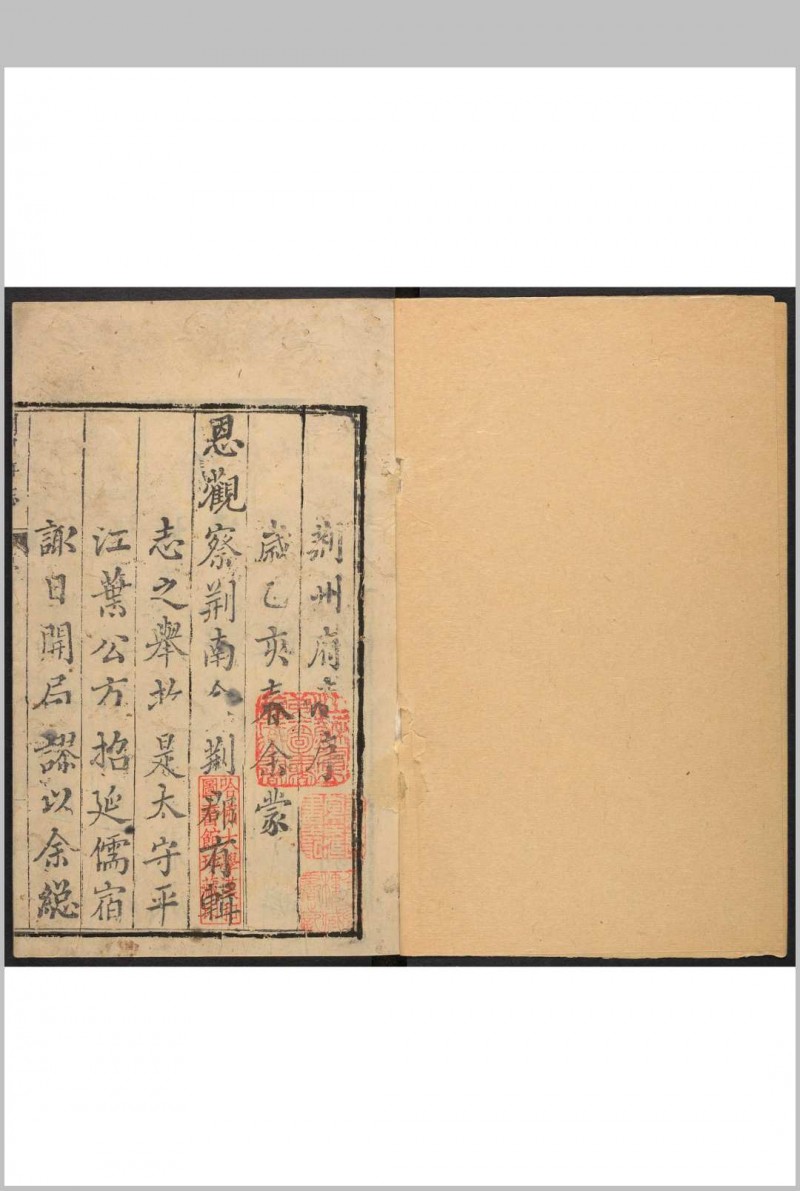 荆州府志序
歲乙亥春余蒙
恩觀察荆南今荆郡有輯
志之舉扵是太守平
江葉公方招延儒宿
諏日開局謬以余總